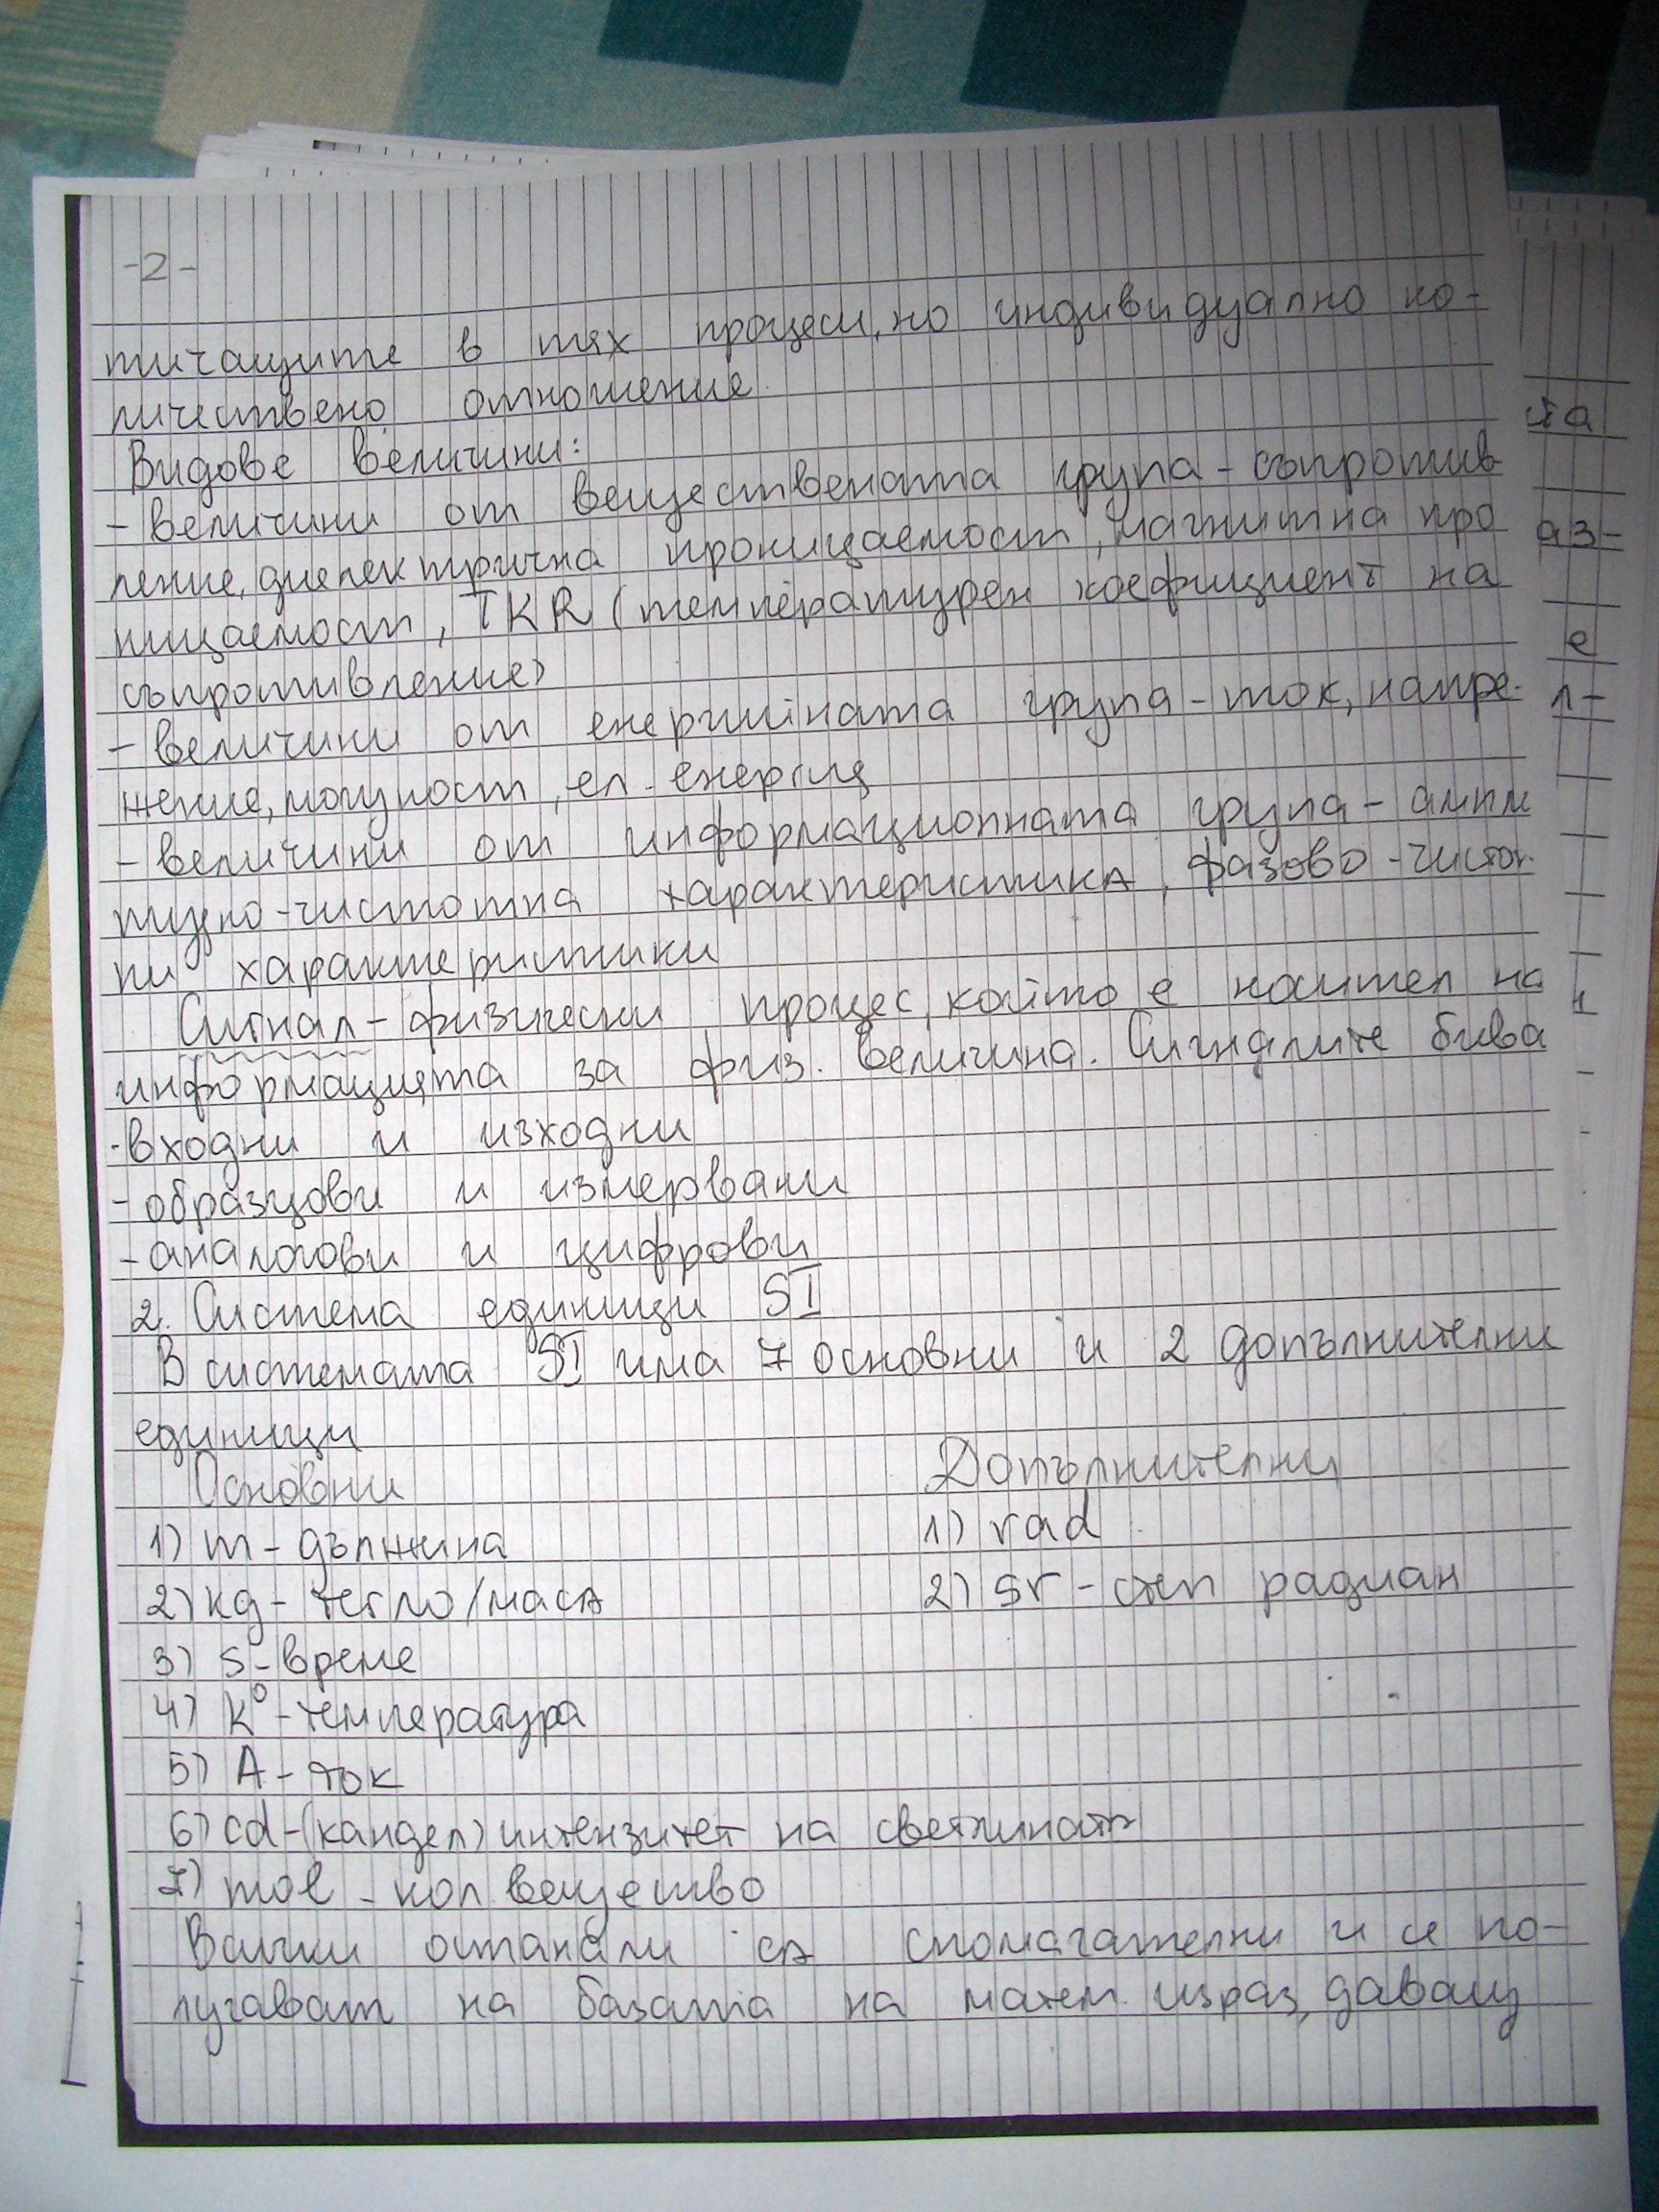 -2-
тичащите в тях процеси, но индивидуално ко-
личествено отношение.
Видове величини:
- величини от веществената група - съпротив-
ление, диелектрична проницаемост, магнитна про
ницаемост, TKR (температурен коефициент на
съпротивление)
- величини от енергийната група - ток, напре-
жение, мощност, ел. енергия
- величини от информационната група - ампли
тудно-чистотна характеристика, фазово-чистот.
ни характеристики
Сигнал - физически процес, който е носител на
информацията за физ. величина. Сигналите бива
- входни и изходни
- образцови и измервани
- аналогови и цифрови
2. Система единици SI
В системата SI има 7 основни и 2 допълнителни
единици
Основни Допълнителни
1) m - дължина 1) rad
2) kg - тегло/маса 2) sr - стер радиан
3) s - време
4) K° - температура
5) A - ток
6) cd - (кандел) интензитет на светлината
7) mol - кол вещество
Всички останали са спомагателни и се по-
лучават на базата на матем. израз, даващ
та
аз-
е
л-